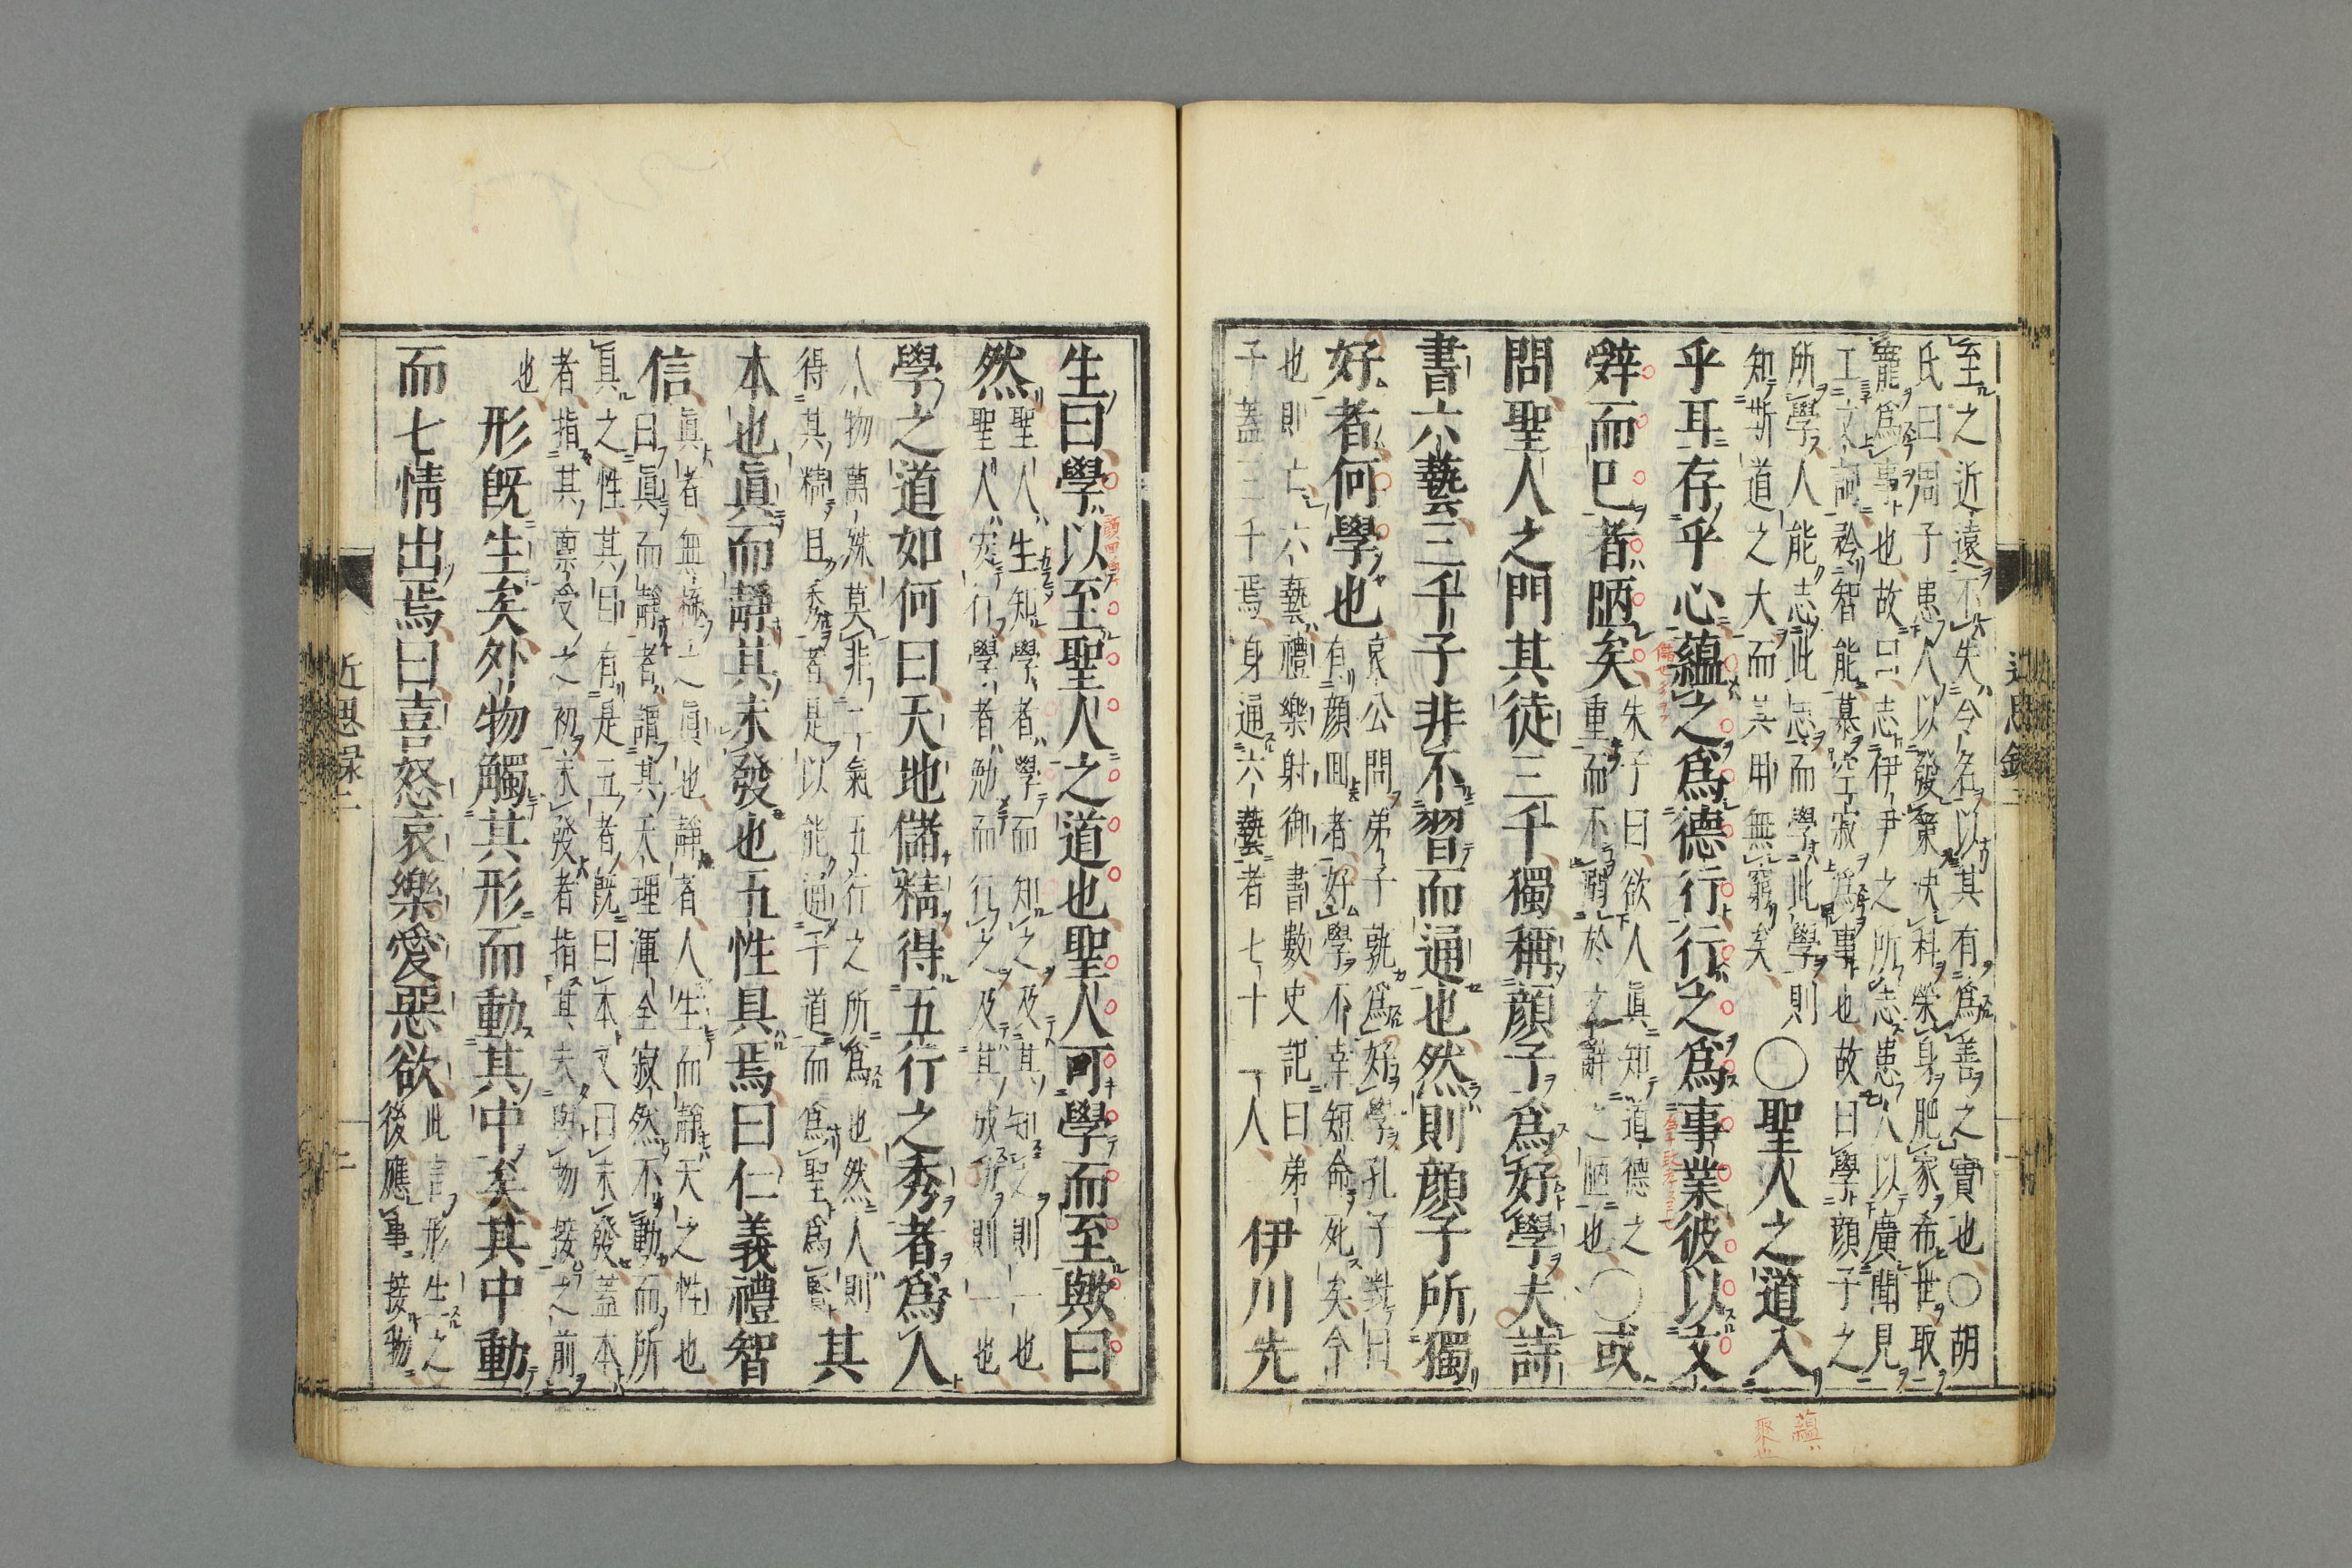 至之近遠不失令名以其有爲善之實也○胡
氏曰周子患人以發策決科榮身肥家希世取
寵爲事也故曰志伊尹之所志患人以廣聞見
工文詞矜智能慕空寂爲事也故曰學顏子之
所學人能志此志而學此學則
知斯道之大而其用無窮矣
○聖人之道入
乎耳存乎心蘊之爲德行行之爲事業彼以文
辭而已者陋矣
朱子曰欲人眞知道德之
重而不溺於文辭之陋也
○或
問聖人之門其徒三千獨稱顏子爲好學夫詩
書六藝三千子非不習而通也然則顏子所獨
好者何學也
哀公問弟子孰爲好學孔子對曰
有顏回者好學不幸短命死矣今
也則亡六藝禮樂射御書數史記曰弟
子蓋三千焉身通六藝者七十二人
伊川先
近思錄二
蘊
聚也
生曰學以至聖人之道也聖人可學而至歟曰
然
聖人生知學者學而知之及其知之則一也
聖人安行學者勉而行之及其成功則一也
學之道如何曰天地儲精得五行之秀者爲人
人物萬殊莫非二氣五行之所爲也然人則
得其精且秀者是以能通于道而爲聖爲賢
其
本也眞而靜其未發也五性具焉曰仁義禮智
信
眞者無極之眞也靜者人生而靜天之性也
曰眞而靜者謂其天理渾全寂然不動而所
眞之性其目有是五者既曰本又曰未發蓋本
者指其稟受之初未發者指其未與物接之前
也
形既生矣外物觸其形而動其中矣其中動
而七情出焉曰喜怒哀樂愛惡欲
此言形生之
後應事接物
近思録二
二